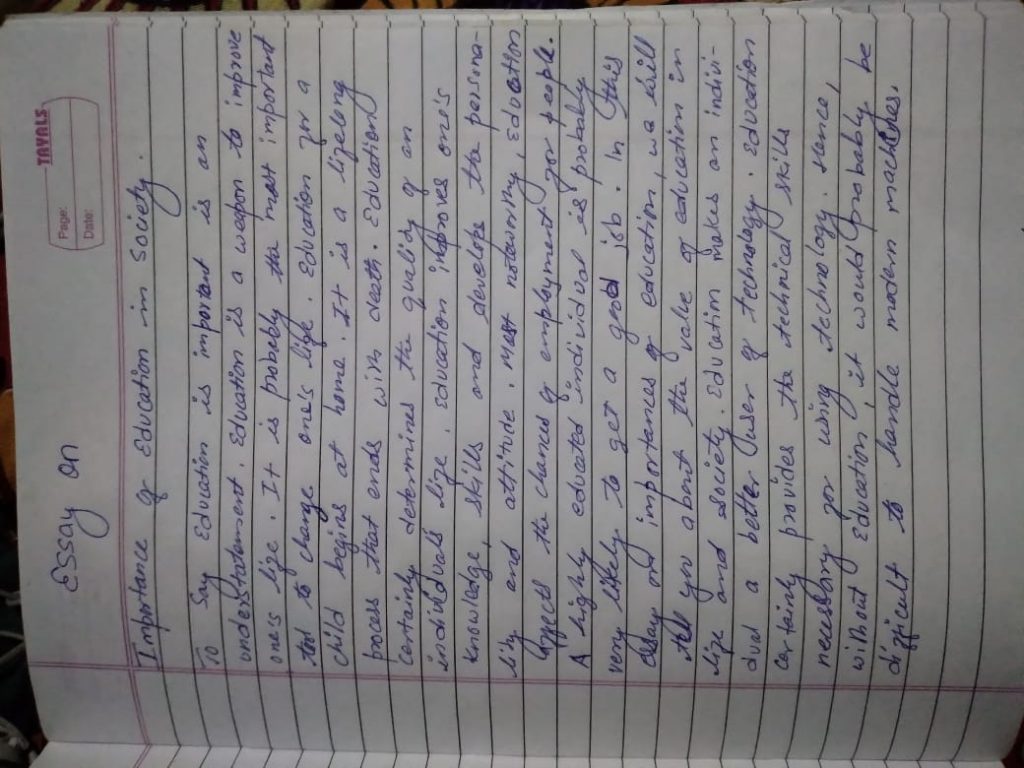 TAYALS
Page:
Date:
Essay on
Importance of Education in Society.
To Say Education is important is an
understatement. Education is a weapon to improve
one's life. It is probebly the most important
tool to change one's life. Education for a
child begins at home. It is a lifelong
process that ends with death. Education
certainly determines the quality of an
individuals life. Education improves one's
knowledge, skills and develops the persona-
lity and attitude. Most noteworthy, Education
affects the chances of employment for people.
A highly educated individual is probably
very likely to get a good job. In this
essay on importances of education, we will
tell you about the value of education in
life and society. Education makes an indivi-
dual a better user of technology. Education
certainly provides the technical skills
necessary for using technology. Hence,
without Education, it would probably be
difficult to handle modern machines.